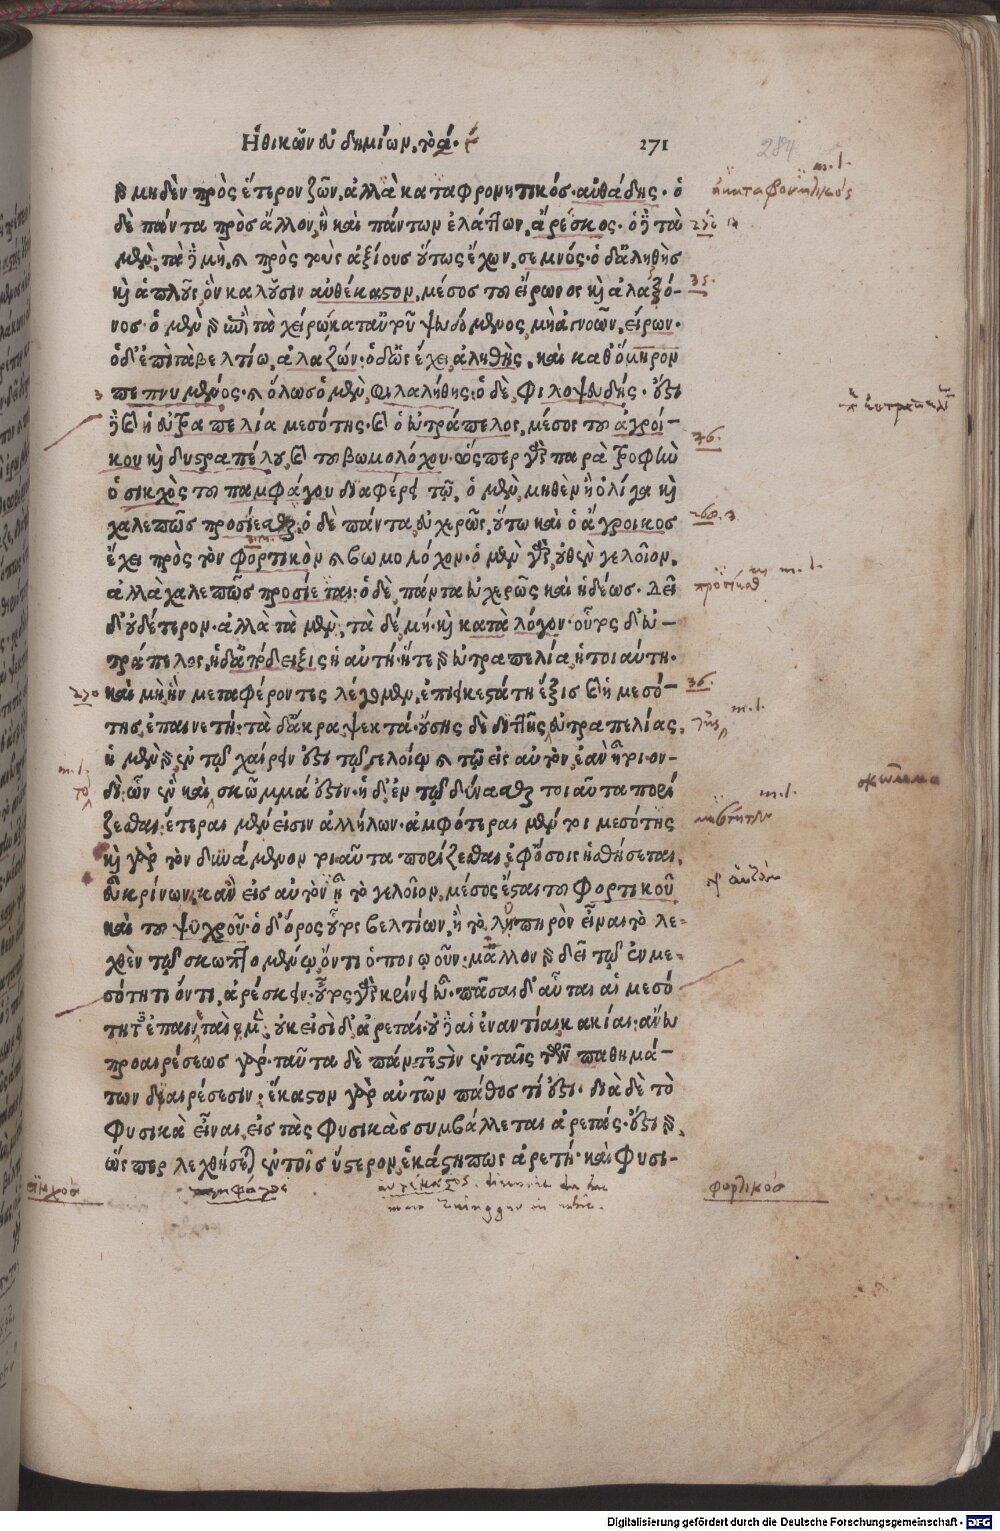 Ἠθικῶν εὐδημίων, τὸ α.
271
284
ὁ μηδὲν πρὸς ἕτερον ζῶν, ἀλλὰ καταφρονητικός, αὐθάδης· ὁ
δὲ πάντα πρὸς ἄλλον, ἢ καὶ πάντων ἐλάττων, ἄρεσκος· ὁ δὲ τὰ
μὲν, τὰ δὲ μὴ, καὶ πρὸς τοὺς ἀξίους οὕτως ἔχων, σεμνός· ὁ δ' ἀληθὴς
καὶ ἁπλοῦς, ὃν καλοῦσιν αὐθέκαστον, μέσος τοῦ εἴρωνος καὶ ἀλαζό-
νος· ὁ μὲν γὰρ ἐπὶ τὰ χείρω καταὑτοῦ ψευδόμενος, μὴ ἀγνοῶν, εἴρων·
ὁ δ' ἐπὶ τὰ βελτίω, ἀλαζών· ὁ δ' ὡς ἔχει, ἀληθής, καὶ καθ' ὅμηρον
πεπνυμένος· καὶ ὅλως ὁ μὲν, φιλαλήθης· ὁ δὲ φιλοψευδής· ἔστι
δὲ καὶ ἡ εὐτραπελία μεσότης· καὶ ὁ εὐτράπελος, μέσος τοῦ ἀγροί-
κου καὶ δυστραπέλου, καὶ τοῦ βωμολόχου· ὥσπερ γὰρ παρὰ τροφὴν
ὁ σικχὸς τοῦ παμφάγου διαφέρει τῷ, ὁ μὲν μηθὲν ἢ ὀλίγα καὶ
χαλεπῶς προσίεσθαι, ὁ δὲ πάντα εὐχερῶς, οὕτω καὶ ὁ ἄγροικος
ἔχει πρὸς τὸν φορτικὸν καὶ βωμολόχον· ὁ μὲν γὰρ οὐθὲν γελοῖον,
ἀλλὰ χαλεπῶς προσίεται· ὁ δὲ, πάντα εὐχερῶς καὶ ἡδέως. Δεῖ
δ' οὐδέτερον· ἀλλὰ τὰ μὲν, τὰ δὲ μή· καὶ κατὰ λόγον· οὗτος δ' εὐ-
τράπελος, ἡ δ' ἀπόδειξις ἡ αὐτή· ἥτε γὰρ εὐτραπελία, ἡ τοιαύτη·
καὶ μὴ, ἣν μεταφέροντες λέγομεν, ἐπιεικεστάτη ἕξις καὶ ἡ μεσό-
της, ἐπαινετή· τὰ δ' ἄκρα, ψεκτά· οὔσης δὲ διττῆς εὐτραπελίας,
ἡ μὲν γὰρ ἐν τῷ χαίρειν ἐστὶ τῷ γελοίῳ καὶ τῷ εἰς αὐτὸν, ἐὰν ᾖ τοιον-
δί· ὧν ἓν καὶ σκῶμμά ἐστιν· ἡ δ' ἐν τῷ δύνασθαι τοιαῦτα πορί
ζεσθαι· ἕτεραι μέν εἰσιν ἀλλήλων· ἀμφότεραι μέντοι μεσότης
καὶ γὰρ τὸν δυνάμενον τοιαῦτα πορίζεσθαι, ἐφ' ὅσοις ἡσθήσεται,
εὖ κρίνων, κἂν εἰς αὐτὸν ᾖ τὸ γελοῖον, μέσος ἔσται τοῦ φορτικοῦ
καὶ τοῦ ψυχροῦ· ὁ δ' ὅρος οὗτος βελτίων, ἢ τὸ λυπηρὸν εἶναι τὸ λε-
χθὲν τῷ σκωπτομένῳ ὄντι ὁποιῳοῦν· μᾶλλον γὰρ δεῖ τῷ ἐν με-
σότητι ὄντι, ἀρέσκειν· οὗτος γὰρ κρίνει εὖ· πᾶσαι δ' αὗται αἱ μεσό
τητες ἐπαινεταὶ μὲν, οὐκ εἰσὶ δ' ἀρεταί· οὐδ' αἱ ἐναντίαι κακίαι· ἄνευ
προαιρέσεως γάρ· ταῦτα δὲ πάντ' ἐστὶν ἐν ταῖς τῶν παθημά-
των διαιρέσεσιν· ἕκαστον γὰρ αὐτῶν πάθος τί ἐστι· διὰ δὲ τὸ
φυσικὰ εἶναι, εἰς τὰς φυσικὰς συμβάλλεται ἀρετάς· ἔστι γὰρ,
ὥσπερ λεχθήσεται ἐν τοῖς ὕστερον, ἑκάστη πως ἀρετὴ· καὶ φυσι-
m.l.
35.
36.
m.l.
36.
m.l.
m.l.
σκῶμμα
m.l.
σικχός
παμφάγος
αὐθέκαστος
φορτικός
Digitalisierung gefördert durch die Deutsche Forschungsgemeinschaft - DFG